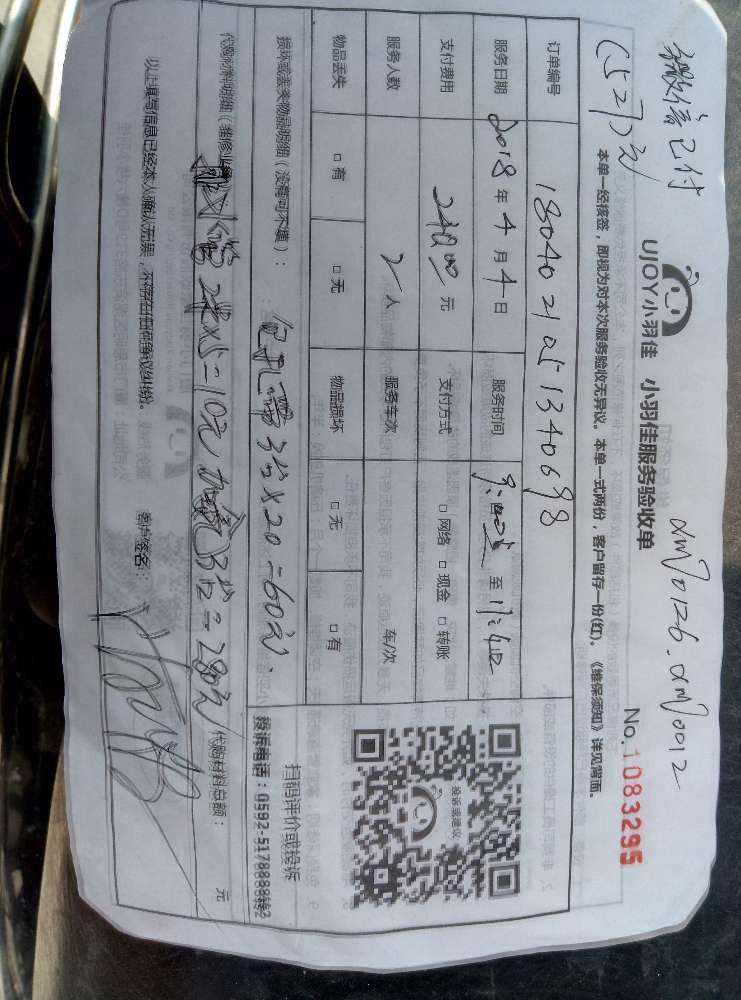 微信已付
xm0126.xm0012
(527)元
UJOY小羽佳 小羽佳服务验收单
No.1083295
本单一经接签，即视为对本次服务验收无异议。本单一式两份，客户留存一份(红)。《维保须知》详见背面。
订单编号 1804021051340698
服务日期 2018年4月4日 服务时间 至
支付费用 元 支付方式 □网络 □现金 □转账
服务人数 2人 服务车次 车/次
物品丢失 □有 □无 物品损坏 □无 □有
投诉或建议
扫码评价或投诉
投诉电话：0592-5178888转2
损坏或丢失物品明细（没有可不填）： 3台×20=60元
代购材料明细（维修业 管 2×5=10元 加 3台=280元 代购材料总额： 元
以上填写信息已经本人确认无误，不存在任何争议纠纷。 客户签名：